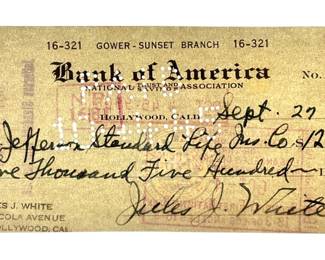 16-321 GOWER - SUNSET BRANCH 16-321
Bank of America
NATIONAL TRUST AND ASSOCIATION
No.
HOLLYWOOD, CALIF.
Sept. 27
Jefferson Standard Life Ins. Co. $12
Thousand Five Hundred
Jules J. White
ES J. WHITE
COLA AVENUE
OLLYWOOD, CAL.